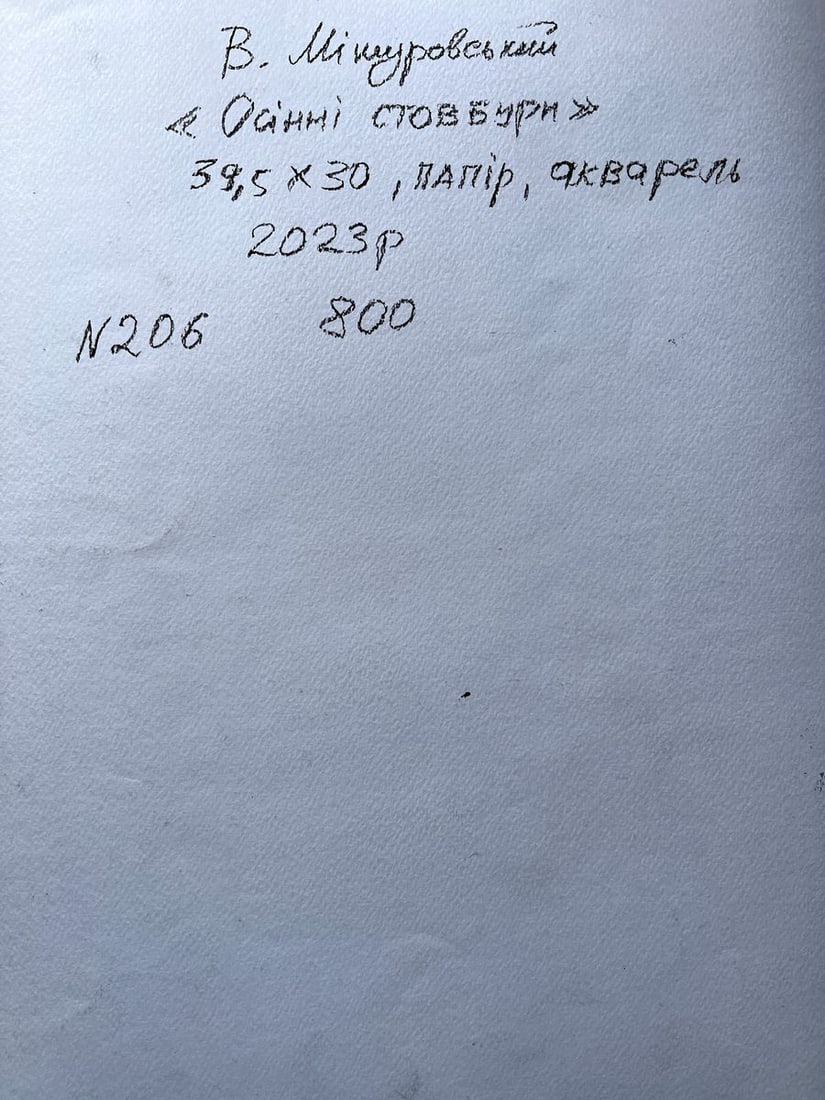 В. Мішуровський
« Осінні стовбури »
39,5 × 30, папір, акварель
2023р
N206 800